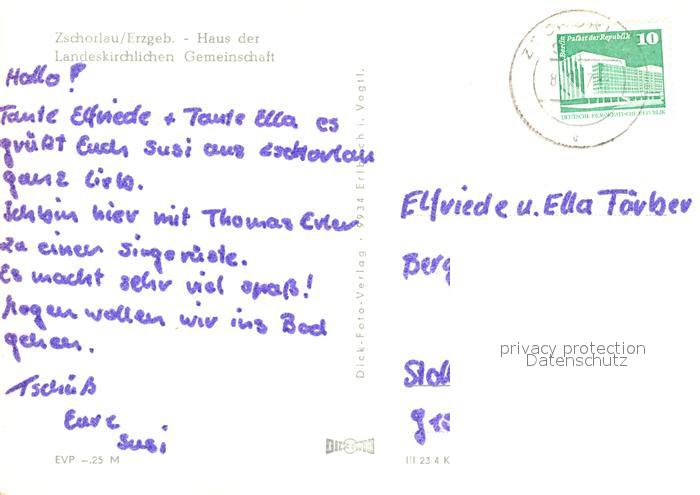 Zschorlau/Erzgeb. - Haus der
Landeskirchlichen Gemeinschaft
Hallo!
Tante Elfriede + Tante Ella es
grüßt Euch Susi aus Zschorlau
ganz lieb.
Ich bin hier mit Thomas
zu einer Singerüste.
Es macht sehr viel spaß!
Morgen wollen wir ins Bad
gehen.
Tschüß
Eure
Susi
EVP -.25 M
Dick-Foto-Verlag · 9934 Erlbach i. Vogtl.
Berlin Palast der Republik 10
DEUTSCHE DEMOKRATISCHE REPUBLIK
Elfriede u. Ella
Berg
privacy protection
Datenschutz
III 23 4 K